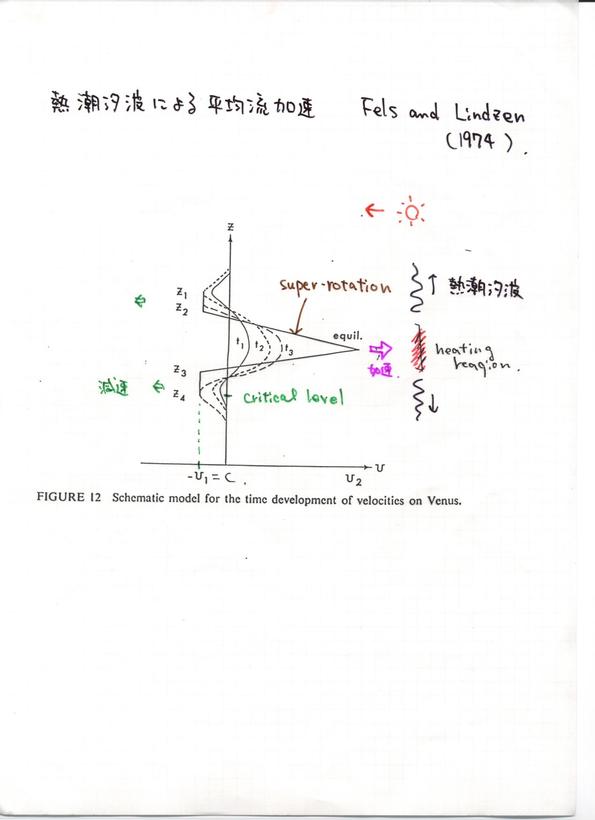 熱潮汐波による平均流加速 Fels and Lindzen
(1974).
z
z₁
z₂
super-rotation
熱潮汐波
equil.
t₁ t₂ t₃
heating
reagion.
加速
z₃
減速
z₄
critical level
-υ₁ = C.
υ₂
υ
FIGURE 12 Schematic model for the time development of velocities on Venus.